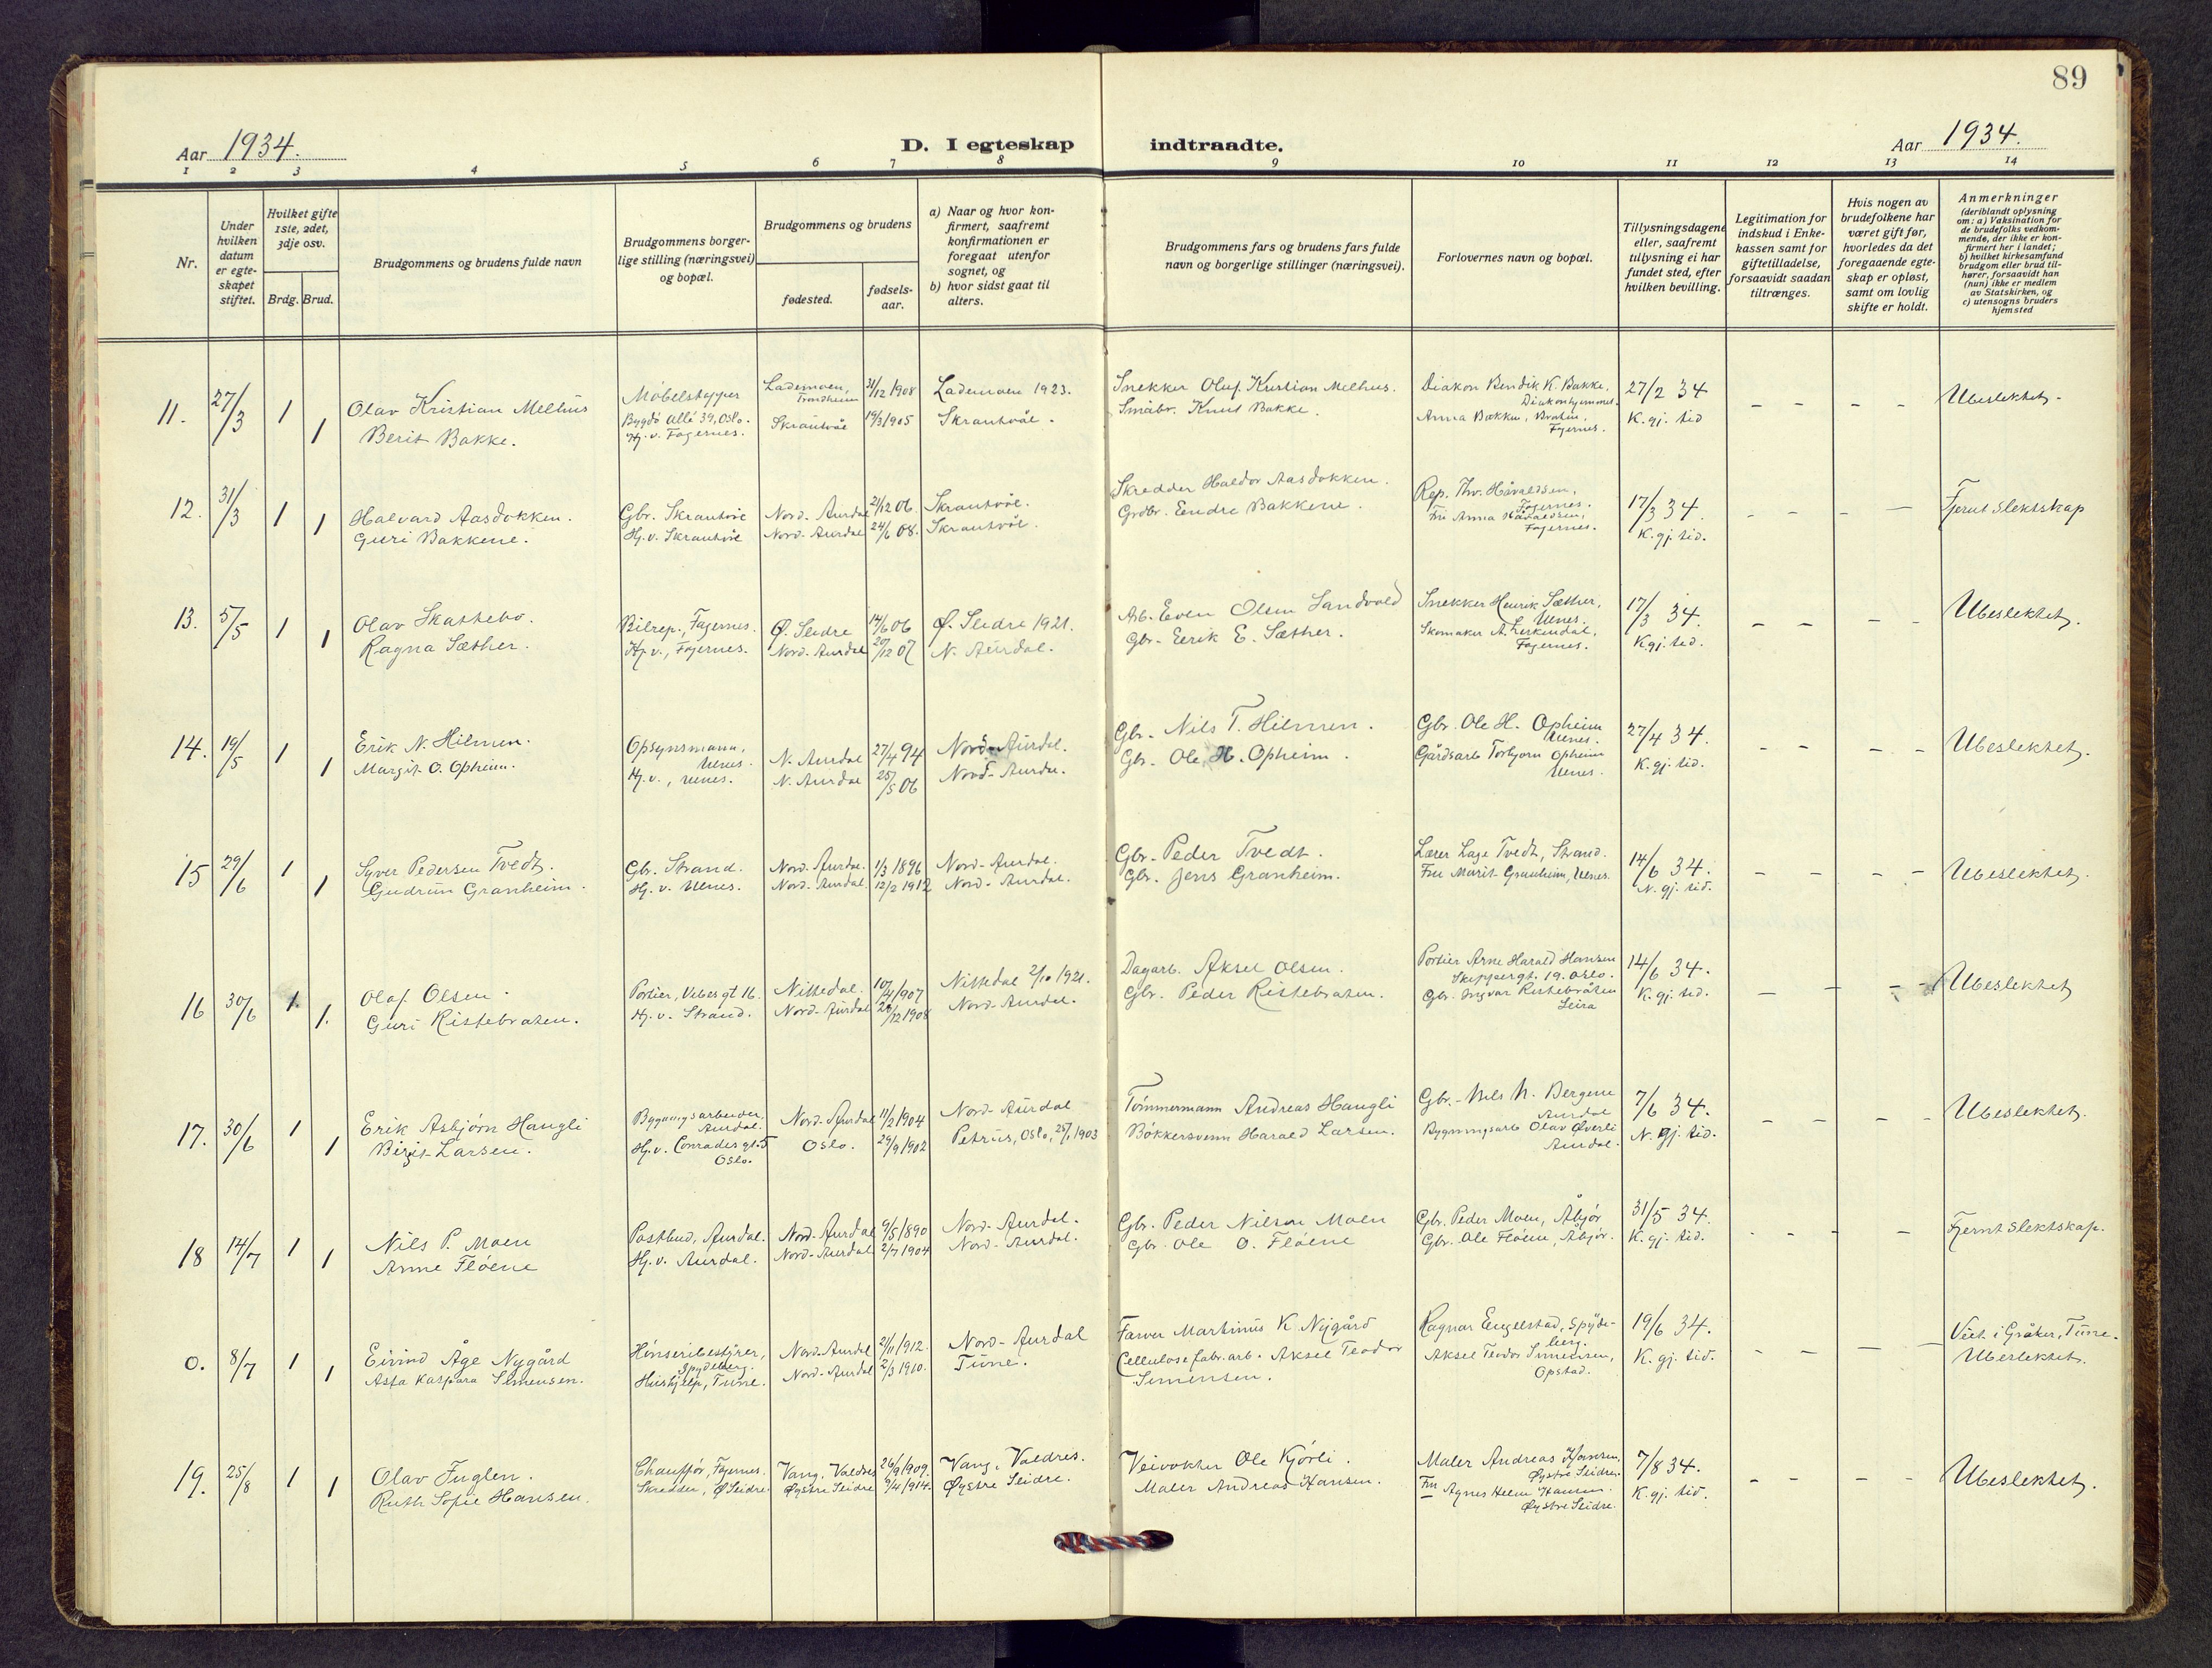 89
Aar 1934.
D. I egteskap indtraadte.
Aar 1934.
1 2 3 4 5 6 7 8 9 10 11 12 13 14
Nr.
Under hvilken datum er egte-skapet stiftet.
Hvilket gifte 1ste, 2det, 3dje osv.
Brdg. Brud.
Brudgommens og brudens fulde navn
Brudgommens borger-lige stilling (næringsvei) og bopæl.
Brudgommens og brudens
fødested.
fødsels-aar.
a) Naar og hvor kon-firmert, saafremt konfirmationen er foregaat utenfor sognet, og
b) hvor sidst gaat til alters.
Brudgommens fars og brudens fars fulde navn og borgerlige stillinger (næringsvei).
Forlovernes navn og bopæl.
Tillysningsdagene eller, saafremt tullysning ei har fundet sted, efter hvilken bevilling.
Legitimation for indskud i Enke-kassen samt for giftetilladelse, forsaavidt saadan tiltrænges.
Hvis nogen av brudefolkene har været gift før, hvorledes da det foregaaende egte-skap er opløst, samt om lovlig skifte er holdt.
Anmerkninger (deriblandt oplysning om: a) Vaksination for de brudefolks vedkom-mende, der ikke er kon-firmert her i landet; b) hvilket kirkesamfund brudgom eller brud til-hører, forsaavidt han (hun) ikke er medlem av Statskirken, og c) utensogns bruders hjemsted
11. 27/3 1 1
Olav Kristian Melhus
Berit Bakke.
Møbelstopper
Bygdø Allé 39, Oslo.
Hj. v. Fagernes.
Lademoen, Trondheim 31/12 1908
Skrautvål 19/3 1905
Lademoen 1923.
Skrautvål.
Snekker Oluf Kristian Melhus.
Småbr. Knut Bakke.
Diakon Bendik K. Bakke,
Diakonhjemmet.
Anna Bakken, Braten,
Fagernes.
27/2 34
K. gj. tid
- - - -
Ubeslektet.
12. 31/3 1 1
Halvard Aasdokken.
Guri Bakkene.
Gbr. Skrautvål
Hj. v. Skrautvål
Nord-Aurdal 21/12 06
Nord-Aurdal 24/6 08.
Skrautvål.
Skrautvål.
Skredder Haldor Aasdokken.
Grdbr. Endre Bakkene.
Rep. Thv. Håvaldsen,
Fagernes.
Fru Anna Håvaldsen,
Fagernes.
17/3 34.
K. gj. tid.
- - - -
Fjernt slektskap
13. 5/5 1 1
Olav Skattebo.
Ragna Sæther.
Bilrep., Fagernes.
Hj. v., Fagernes.
Ø. Slidre 14/6 06
Nord-Aurdal 20/12 07
Ø. Slidre 1921.
N. Aurdal.
Arb. Even Olsen Sandvold
Gbr. Eerik E. Sæther.
Snekker Henrik Sæther,
Ulnes.
Skomaker A. Lerkendal,
Fagernes.
17/3 34.
K. gj. tid.
- - - -
Ubeslektet.
14. 19/5 1 1
Erik N. Hilmen.
Margit O. Opheim.
Opsynsmann,
Ulnes.
Hj. v., Ulnes.
N. Aurdal 27/4 94
N. Aurdal 25/5 06
Nord-Aurdal.
Nord-Aurdal.
Gbr. Nils T. Hilmen.
Gbr. Ole H. Opheim.
Gbr. Ole H. Opheim
Ulnes.
Gårdsarb Torbjørn Opheim
Ulnes.
27/4 34.
K. gj. tid.
- - - -
Ubeslektet.
15 29/6 1 1
Syver Pedersen Tvedt.
Gudrun Granheim.
Gbr. Strand.
Hj. v. Ulnes.
Nord-Aurdal. 1/3 1896
Nord-Aurdal 12/2 1912
Nord-Aurdal.
Nord-Aurdal.
Gbr. Peder Tvedt.
Gbr. Jens Granheim.
Lærer Lage Tvedt, Strand.
Fru Marit Granheim, Ulnes.
14/6 34.
N. gj. tid.
- - - -
Ubeslektet.
16 30/6 1. 1.
Olaf Olsen.
Guri Ristebraten.
Portier, Vibesgt 16.
Hj. v. Strand.
Nittedal. 10/4 1907
Nord-Aurdal 28/12 1908
Nittedal 2/10 1921.
Nord-Aurdal.
Dagarb. Aksel Olsen.
Gbr. Peder Ristebraten.
Portier Arne Harald Hansen
Skippergt. 19. Oslo.
Gbr. Ingvar Ristebråten
Leira
14/6 34.
K. gj. tid.
- - - -
Ubeslektet
17. 30/6 1 1
Erik Asbjørn Haugli
Birgit Larsen.
Bygningsarbeider,
Aurdal.
Hj. v. Conradesgt. 5
Oslo.
Nord-Aurdal 11/2 1904
Oslo. 29/9 1902
Nord-Aurdal
Petrus, Oslo, 25/1 1903
Tømmermann Andreas Haugli
Bøkkersvenn Harald Larsen.
Gbr. Nils N. Bergene
Aurdal
Bygningsarb Olav Øverli
Aurdal.
7/6 34.
N. gj. tid.
- - - -
Ubeslektet.
18 14/7 1 1
Nils P. Moen
Anne Fløene
Postbud, Aurdal.
Hj. v. Aurdal.
Nord-Aurdal 9/5 1890
Nord-Aurdal 2/7 1904
Nord-Aurdal.
Nord-Aurdal.
Gbr. Peder Nilsen Moen
Gbr. Ole O. Fløene
Gbr. Peder Moen, Åbjør
Gbr. Ole Fløene, Åbjør.
31/5 34.
K. gj. tid.
- - - -
Fjernt slektskap.
0. 8/7 1 1
Eivind Åge Nygård
Asta Kaspara Simensen.
Hønseribestyrer,
Spydeberg.
Hushjelp, Tune.
Nord-Aurdal 21/11 1912.
Nord-Aurdal 2/3 1910.
Nord-Aurdal
Tune.
Farver Martinus K. Nygård
Cellulosefabr.arb. Aksel Teodor
Simensen.
Ragnar Engelstad, Spyde-
berg.
Aksel Teodor Simensen,
Opstad.
19/6 34.
K. gj. tid.
- - - -
Viet i Gråker, Tune.
Ubeslektet.
19. 25/8 1 1
Olav Fuglen.
Ruth Sofie Hansen.
Chauffør, Fagernes.
Skredder, Ø Slidre
Vang, Valdres 26/9 1909.
Øystre Slidre 9/4 1914.
Vang, Valdres.
Øystre Slidre.
Veivokter Ole Kjørli.
Maler Andreas Hansen.
Maler Andreas Hansen,
Øystre Slidre.
Fru Agnes Helene Hansen.
Øystre Slidre.
7/8 34.
K. gj. tid.
- - - -
Ubeslektet.